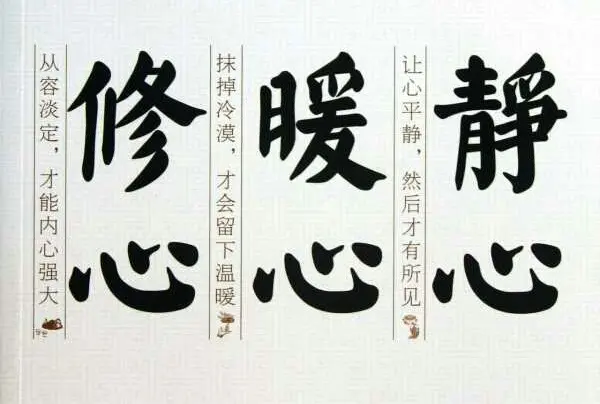 靜心
让心平静，然后才有所见
暖心
抹掉冷漠，才会留下温暖
修心
从容淡定，才能内心强大